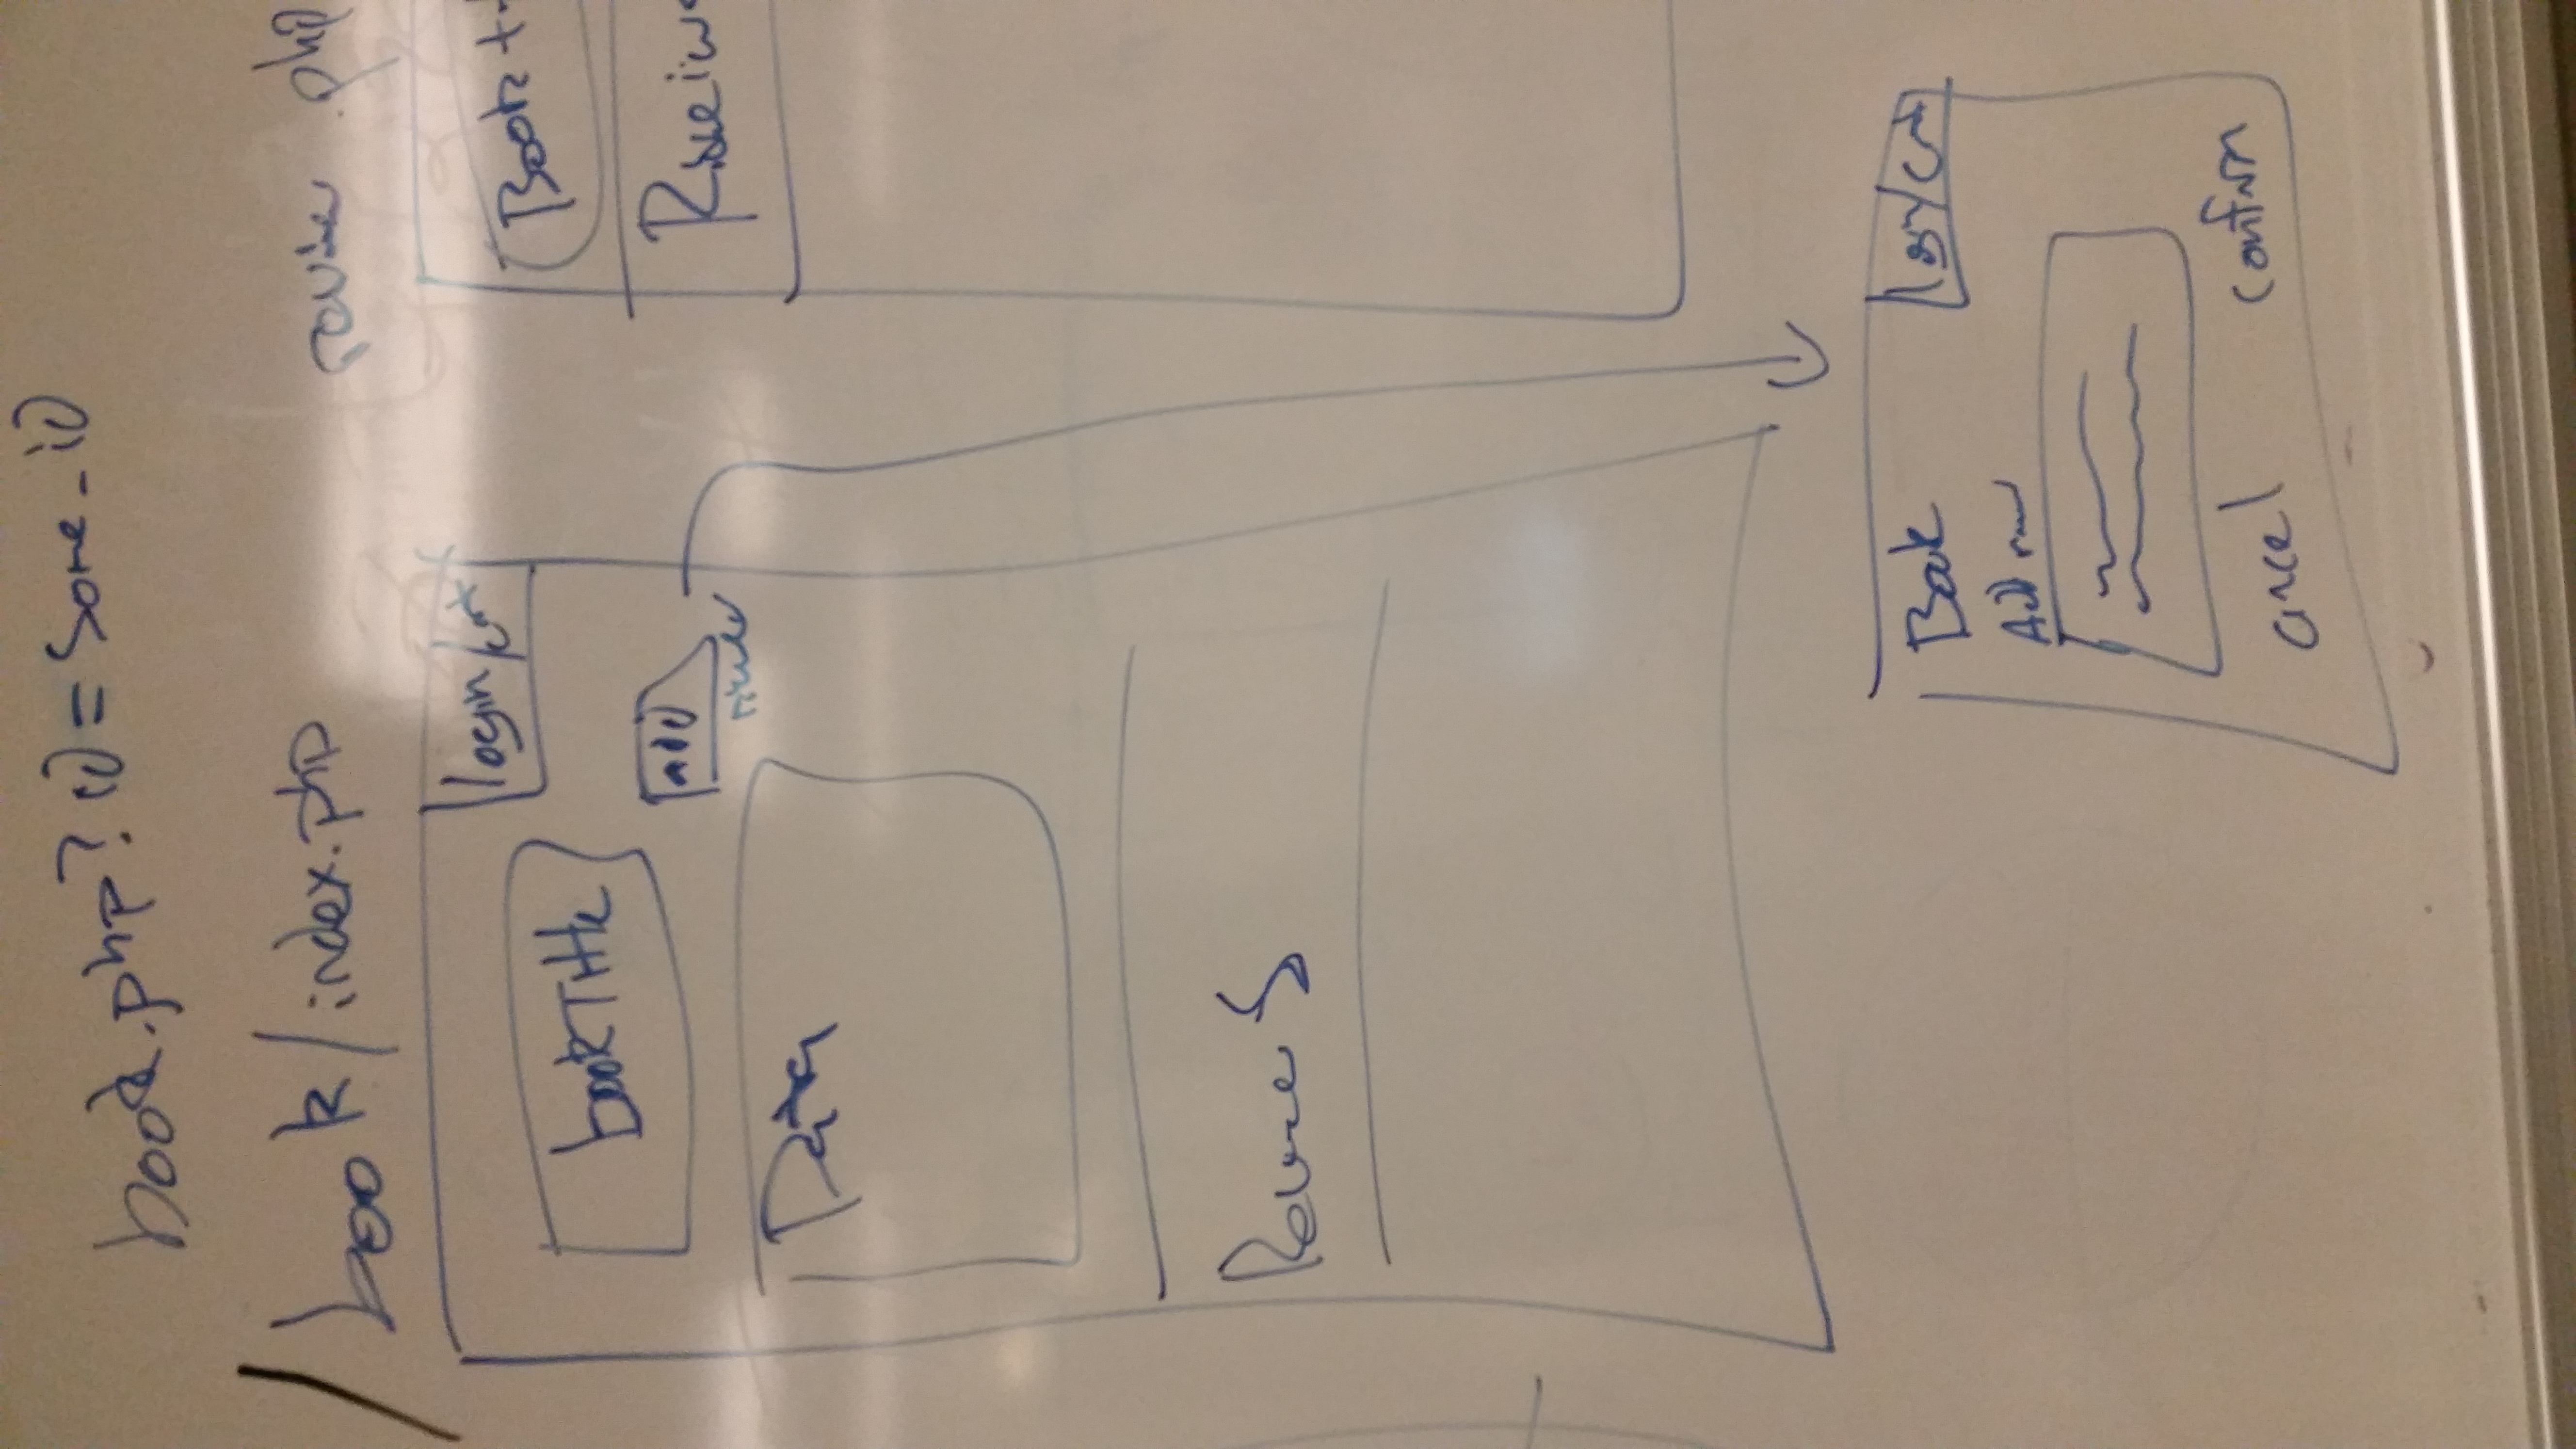 book.php?id=some_id
/book/index.php
login/cart
bookTitle
add
review
Data
Reviews
review.php
Book t
Book
login/cart
Add
cancel
confirm